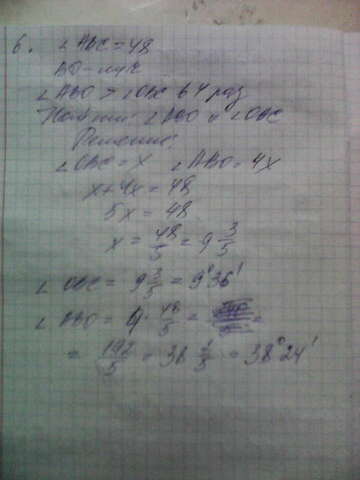 6. ∠ABC = 48
BO - луч
∠ABO > ∠OBC в 4 раз
Найти: ∠ABO и ∠OBC
Решение:
∠OBC = x ∠ABO = 4x
x + 4x = 48
5x = 48
x = 48/5 = 9 3/5
∠OBC = 9 3/5 = 9°36'
∠ABO = 4 · 48/5 =
= 192/5 = 38 2/5 = 38°24'